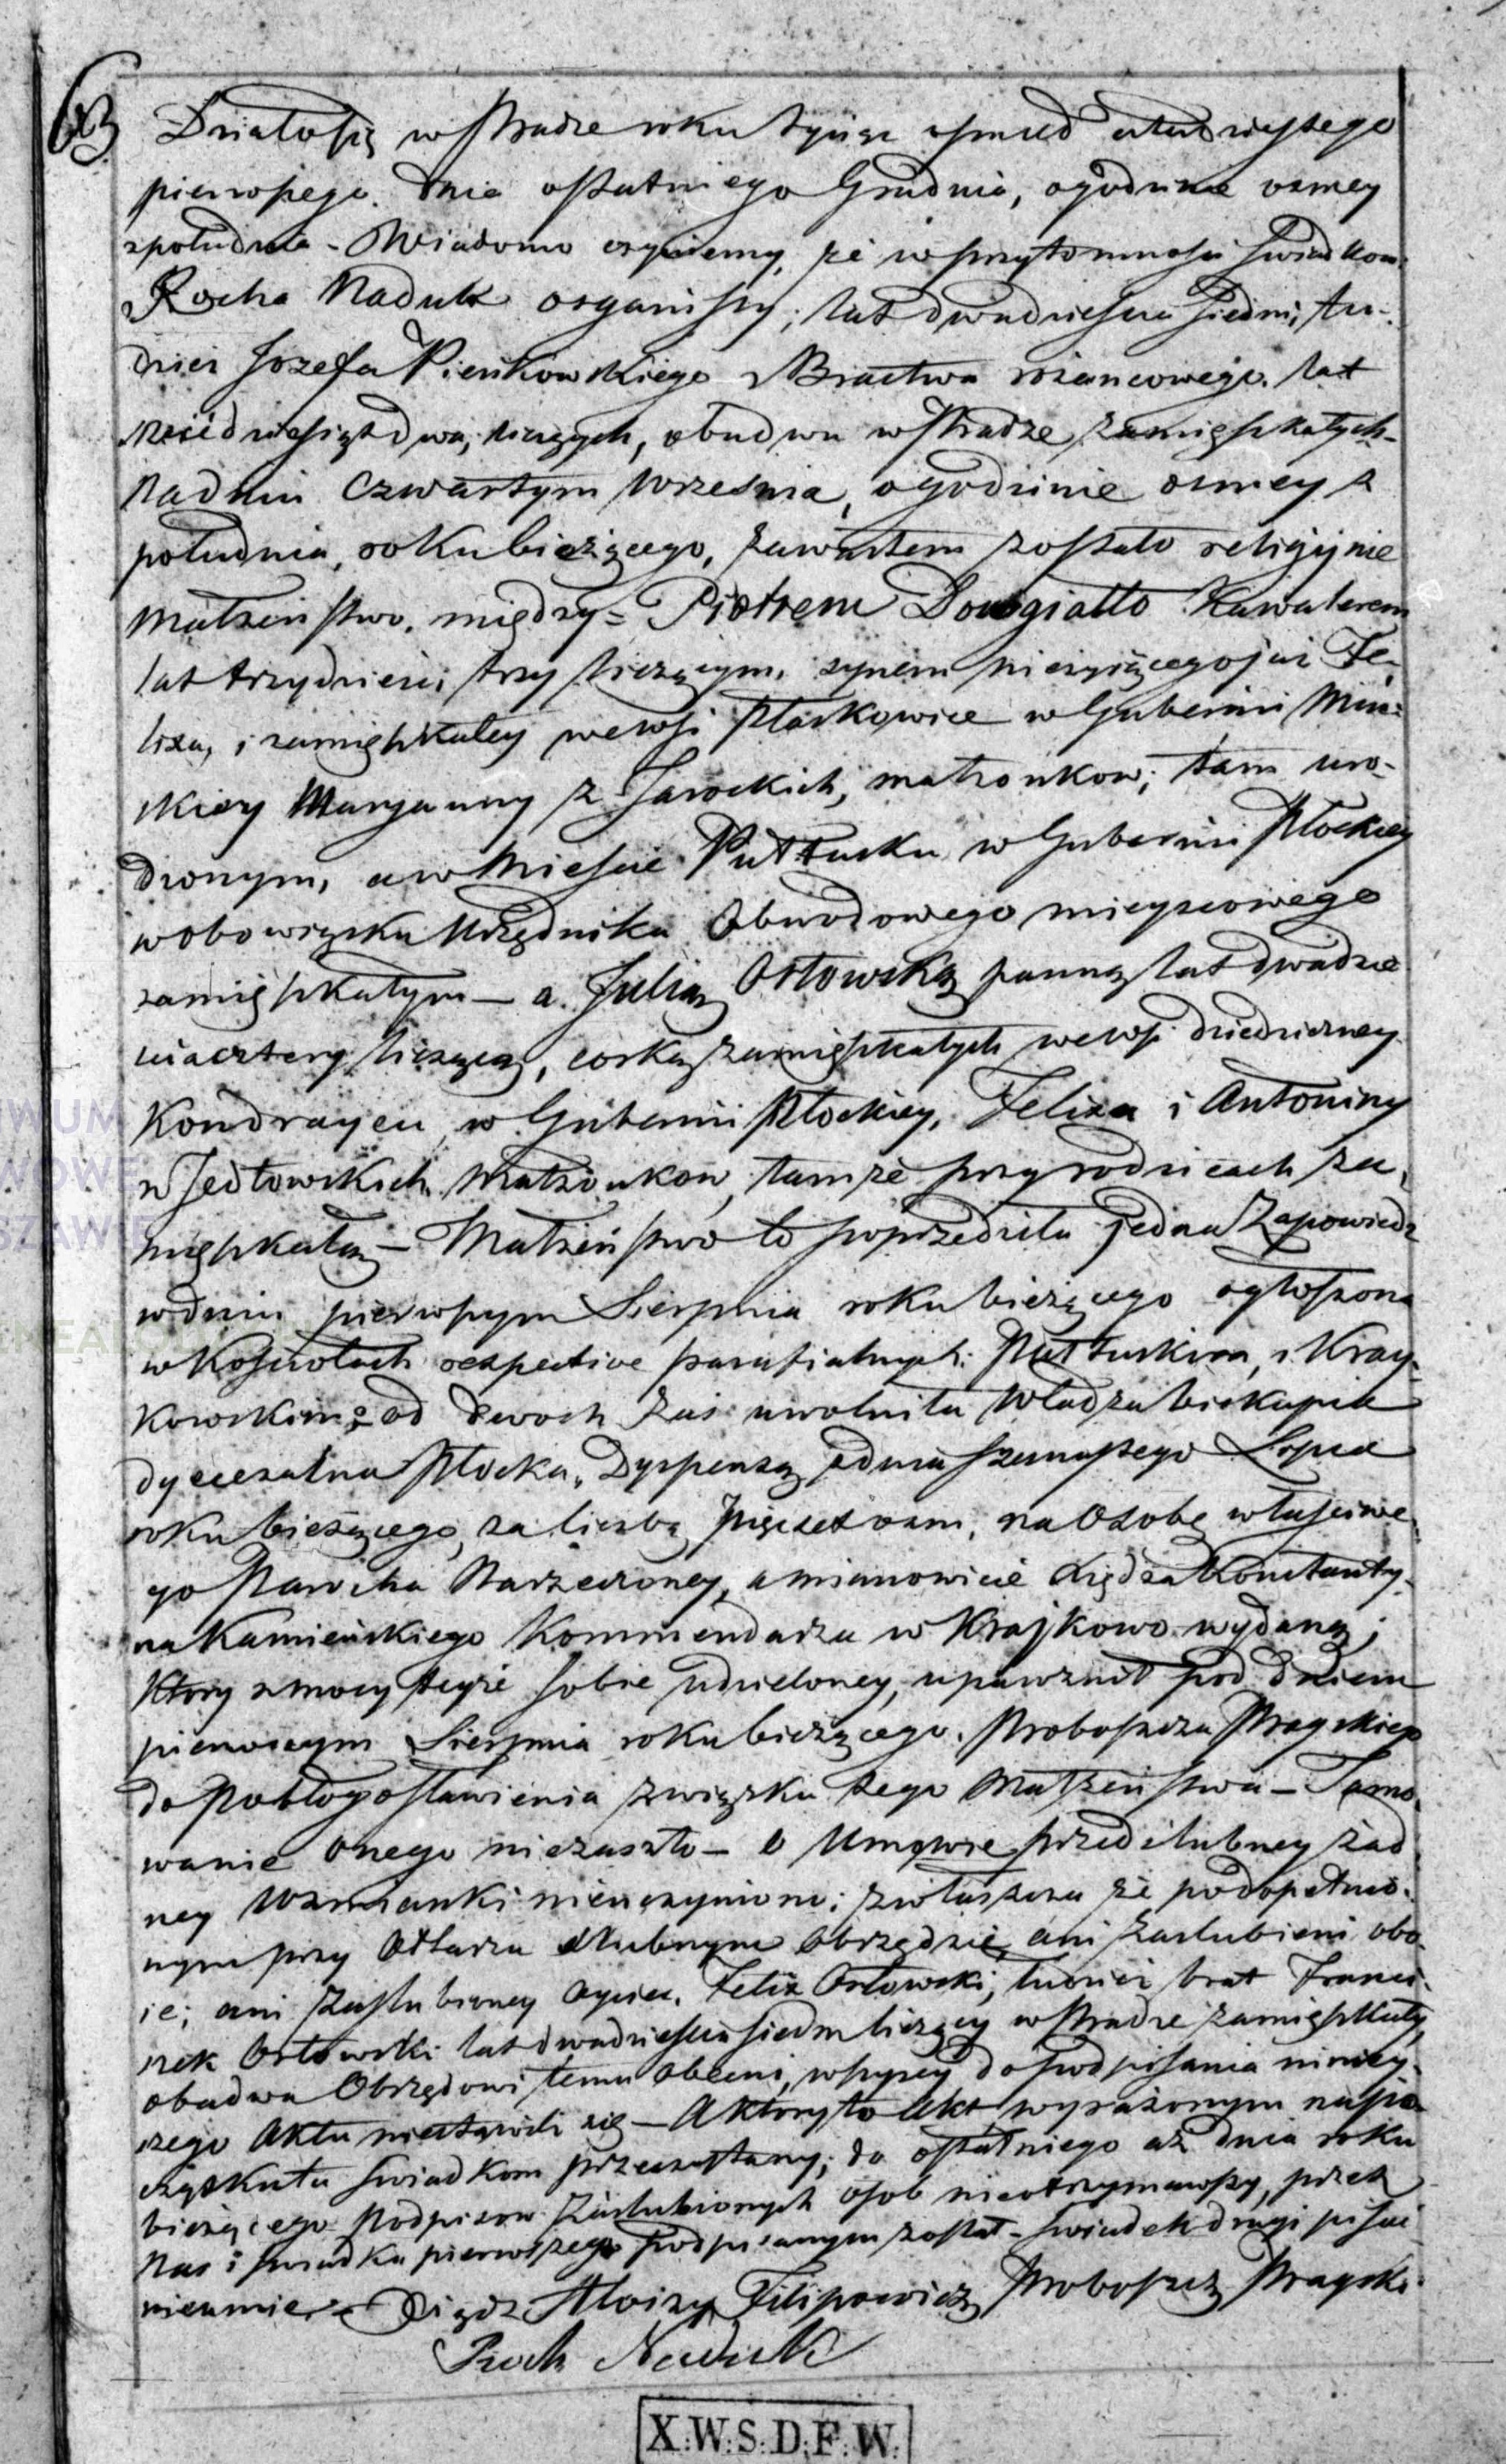 63
Działo się w Pradze roku tysiąc osmset czterdziestego
pierwszego. dnia ostatniego Grudnia, o godzinie osmey
z południa – Wiadomo czyniemy, że w przytomności świadkow
Rocha Naduk organisty, lat dwadzieścia siedm, tu-
dzież Jozefa Pieńkowskiego z Bractwa rożancowego, lat
sześćdziesiąt dwa, liczących, obudwu w Pradze zamięszkałych –
na dniu czwartym Września, o godzinie osmey z
południa, roku bieżącego, zawartem zostało religijnie
małżeństwo, między = Piotrem Dowgiałło Kawalerem
lat trzydzieści trzy liczącym, synem nieżyiącego już Fe-
lixa, i zamięszkałey we wsi Płaskowice w Gubernii Miń-
skiey Maryanny z Jarockich, małżonkow; tam uro-
dzonym, a w Mieście Pułtusku w Gubernii Płockiey
w obowiązku Urzędnika Obwodowego mieyscowego
zamięszkałym – a Julią Orłowską panną lat dwadzie-
ścia cztery liczącą, corką zamięszkałych we wsi dziedziczney
Kondrayeu w Gubernii Płockiey, Felixa i Antoniny
z Jedłowskich Małżonkow, tamże przy rodzicach za-
mięszkałą – Małżeństwo to poprzedziła jedna Zapowiedz
w dniu pierwszym Sierpnia roku bieżącego ogłoszona
w Kościołach respective parafialnych: Pułtuskim, i Kray-
kowskim; od dwoch zaś uwolniła Władza biskupia
dyecezalna Płocka, Dyspensą z dnia szesnastego Lipca
roku bieżącego, za liczbą pięćset osm, na Osobę właściwe-
go Parocha Narzeczoney, a mianowicie Xiędza Konstanty-
na Kamieńskiego Kommendarza w Krajkowo wydaną;
Ktory z mocy teyże sobie udzieloney, upoważnił pod dniem
pierwszym Sierpnia roku bieżącego, Proboszcza Pragskiego
do pobłogosławienia związku tego Małżeństwa – Tamo-
wanie onego niezaszło – O Umowie przedślubney żad-
ney wzmianki nieuczyniono; zwłaszcza że po dopełnio-
nym przy Ołtarzu ślubnym obrzędzie, ani zaślubieni obo-
ie; ani zaślubioney oyciec, Felix Orłowski, tudzież brat Franci-
szek Orłowski lat dwadzieścia siedm liczący w Pradze zamięszkały,
obadwa Obrzędowi temu obecni, wszyscy do podpisania niniey-
szego Aktu niestawili się – A ktory to Akt wyrażonym na po-
czątku świadkom przeczytany; do ostatniego aż dnia roku
bieżącego podpisow Zaślubionych osob nieotrzymawszy, przez
Nas i świadka pierwszego podpisanym został – świadek drugi pisać
nieumie = Xiądz Aloizy Filipowicz Proboszcz Pragski
Roch Naduk
X.W.S.D.F.W.